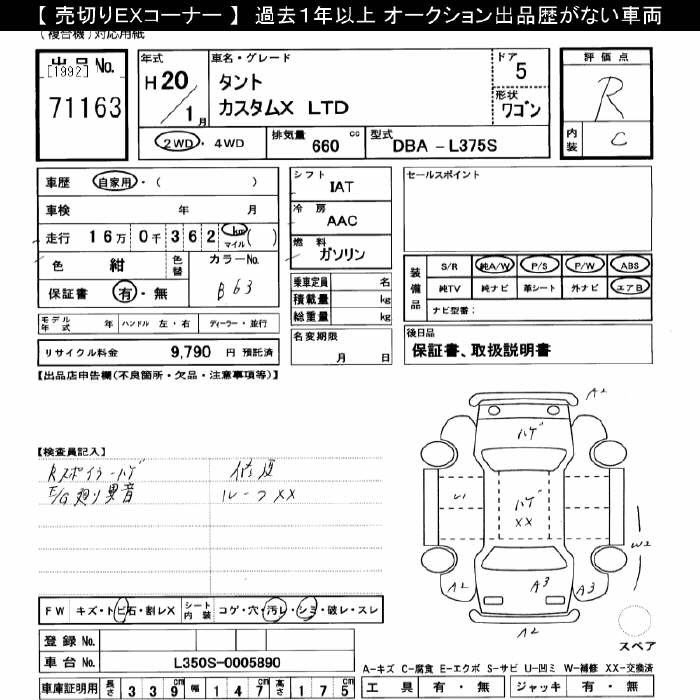 【 売切りEXコーナー 】 過去1年以上 オークション出品歴がない車両
(複合機)対応用紙
出品 No.
[1992]
71163
年式
H 20 / 1 月
車名・グレード
タント
カスタムX LTD
ドア
5
形状
ワゴン
評価点
R
内装
C
2WD ・ 4WD
排気量
660 cc
型式
DBA - L375S
車歴 自家用 ・ ( )
車検 年 月
走行 16万 0千 362 km マイル ( )
色 紺 色替
カラーNo.
B63
保証書 有 ・ 無
シフト
IAT
冷房
AAC
燃料
ガソリン
乗車定員 名
積載量 kg
総重量 kg
セールスポイント
装備品
S/R 純A/W P/S P/W ABS
純TV 純ナビ 革シート 外ナビ エアB
ナビ型番:
モデル年式 年 ハンドル 左・右 ディーラー・並行
リサイクル料金 9,790 円 預託済
名変期限
月 日
後日品
保証書、取扱説明書
【出品店申告欄(不良箇所・欠品・注意事項等)】
【検査員記入】
Rスポイラーハゲ
修復
E/G廻り異音
ルーフXX
A2
ハゲ
U1
ハゲ
XX
W2
A2
A3
A3
A2
スペア
FW キズ・トビ石・割レX
シート内装 コゲ・穴・汚レ・シミ・破レ・スレ
登録 No.
車台 No. L350S-0005890
車庫証明用 長さ 339cm 幅 147cm 高さ 175cm
A-キズ C-腐食 E-エクボ S-サビ U-凹ミ W-補修 XX-交換済
工具 有・無 ジャッキ 有・無